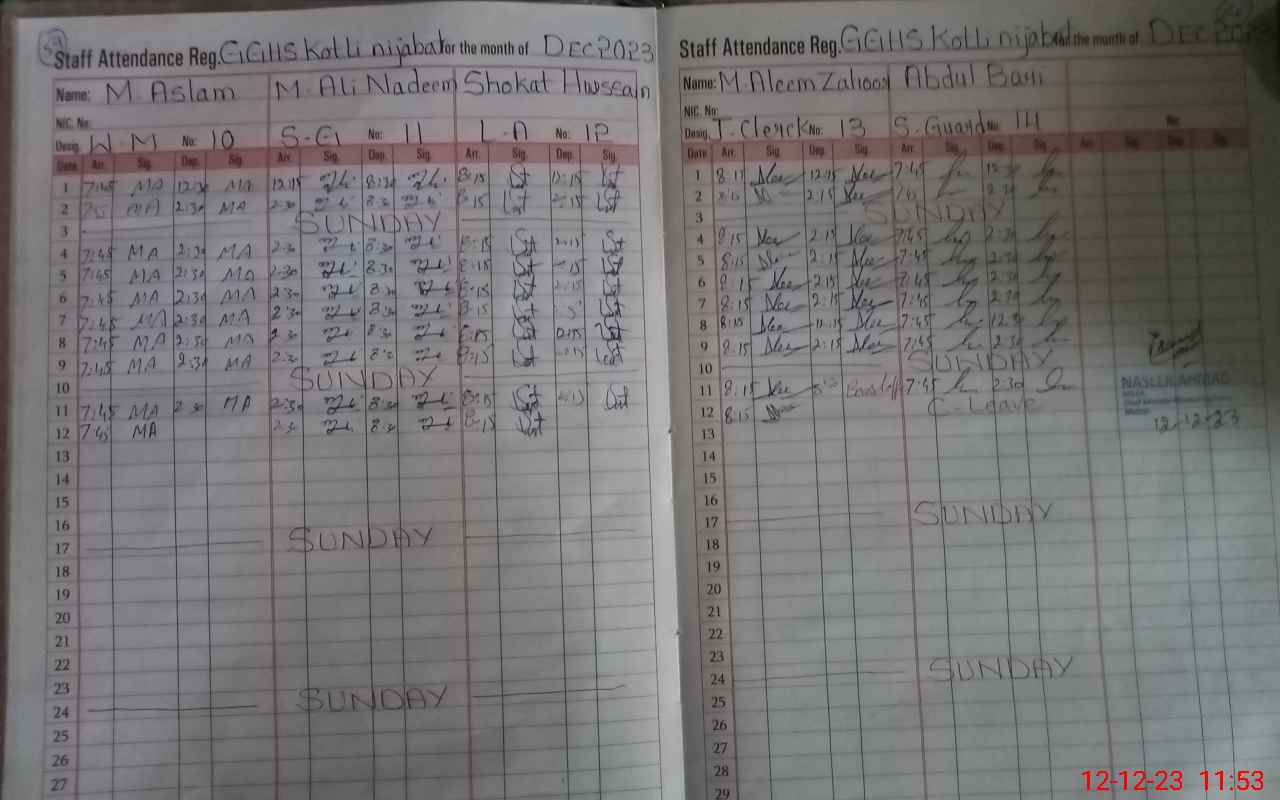 Staff Attendance Reg. GGHS Kotli nijabat for the month of DEC 2023
Name: M. Aslam M. Ali Nadeem Shokat Hussain
NIC. No:
Desig. W-M No: 10 S-G No: 11 L-A No: 12
Date Arr. Sig. Dep. Sig. Arr. Sig. Dep. Sig. Arr. Sig. Dep. Sig.
1 7:45 MA 12:30 MA 12:15 8:30 8:15 12:15
2 MA 2:30 MA 2:30 8:30 8:15 2:15
3 SUNDAY
4 7:45 MA 2:30 MA 2:30 8:30 8:15 2:15
5 7:45 MA 2:30 MA 2:30 8:30 8:15 2:15
6 7:45 MA 2:30 MA 2:30 8:30 8:15 2:15
7 7:45 MA 2:30 MA 2:30 8:30 8:15
8 7:45 MA 2:30 MA 2:30 8:30 8:15 12:15
9 7:45 MA 2:30 MA 2:30 8:30 8:15 2:15
10 SUNDAY
11 7:45 MA 2:30 MA 2:30 8:30 8:15 2:15
12 7:45 MA 2:30 8:30 8:15
13
14
15
16
17 SUNDAY
18
19
20
21
22
23
24 SUNDAY
25
26
27
Staff Attendance Reg. GGHS Kotli nijabat for the month of DEC
Name: M. Aleem Zahoor Abdul Bari
NIC. No:
Desig. J-Clerck No: 13 S. Guard No: 14 No:
Date Arr. Sig. Dep. Sig. Arr. Sig. Dep. Sig. Arr. Sig. Dep. Sig.
1 8:15 12:15 7:45 12:30
2 8:15 2:15 7:45 2:30
3 SUNDAY
4 8:15 2:15 7:45 2:30
5 8:15 2:15 7:45 2:30
6 8:15 2:15 7:45 2:30
7 8:15 2:15 7:45 2:30
8 8:15 12:15 7:45 12:30
9 8:15 2:15 7:45 2:30
10 SUNDAY
11 8:15 7:45 2:30
12 8:15 C-Leave
13
14
15
16
17 SUNDAY
18
19
20
21
22
23
24 SUNDAY
25
26
27
28
29
12-12-23
12-12-23 11:53